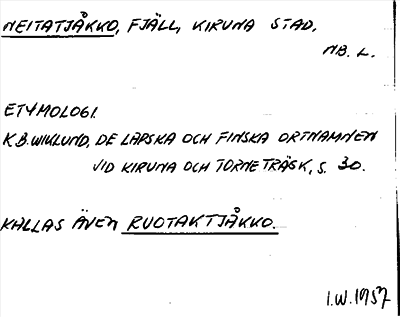 NEITATJÅKKO, FJÄLL, KIRUNA STAD,
NB. L.
ETYMOLOGI.
K.B. WIKLUND, DE LAPSKA OCH FINSKA ORTNAMNEN
VID KIRUNA OCH TORNETRÄSK, S. 30.
KALLAS ÄVEN RUOTAKTJÅKKO.
I.W. 1957